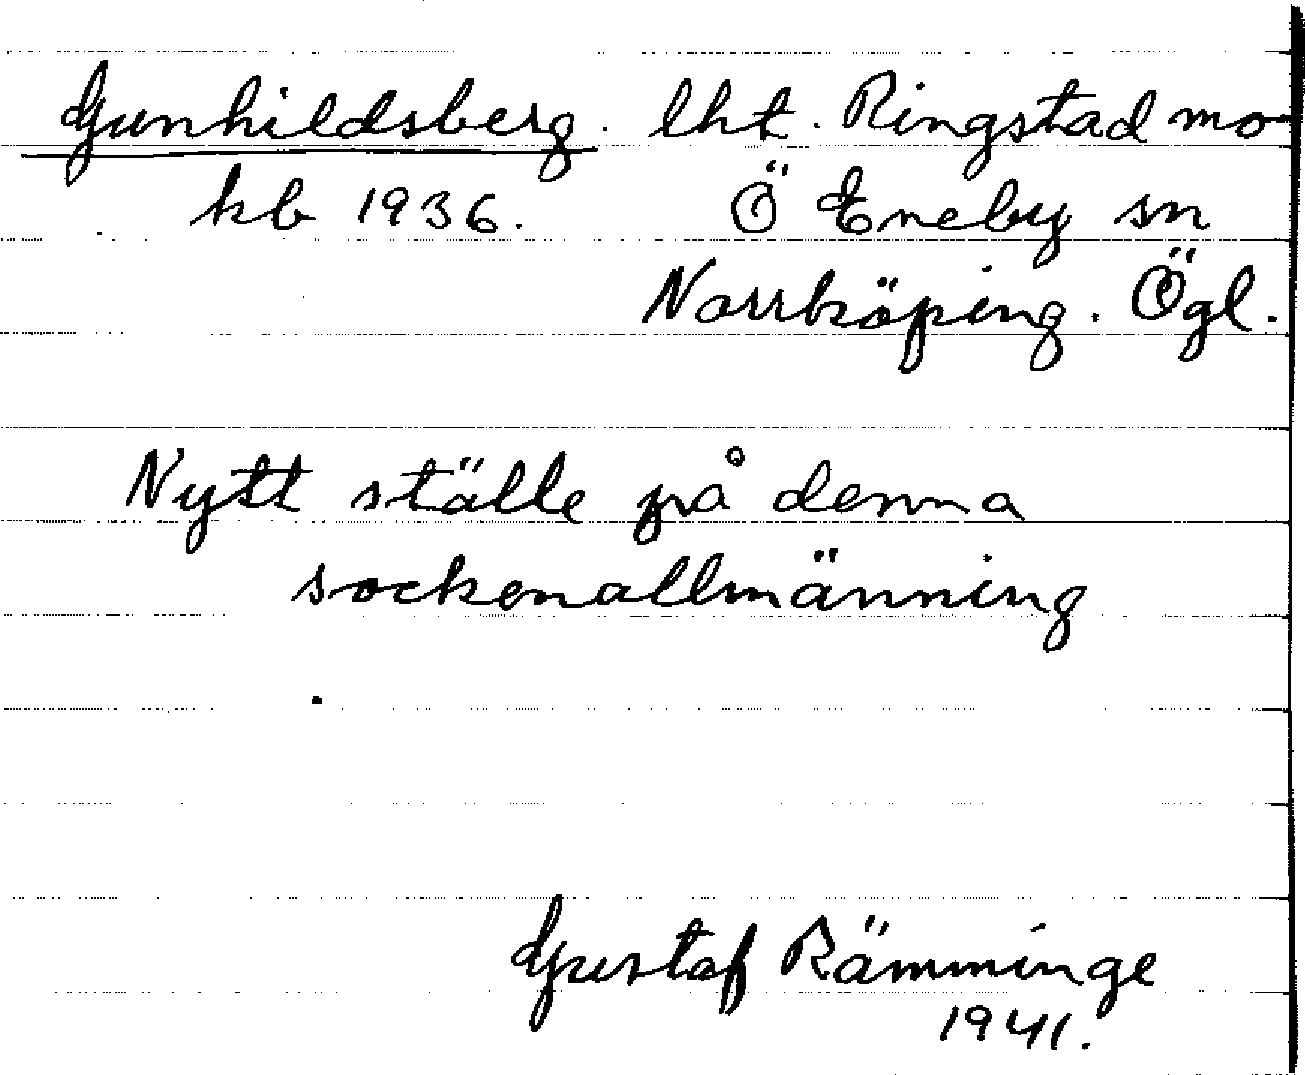 Gunhildsberg. lht. Ringstad mo
kb 1936. Ö Eneby sn
Norrköping. Ögl.
Nytt ställe på denna
sockenallmänning
Gustaf Rämminge
1941.